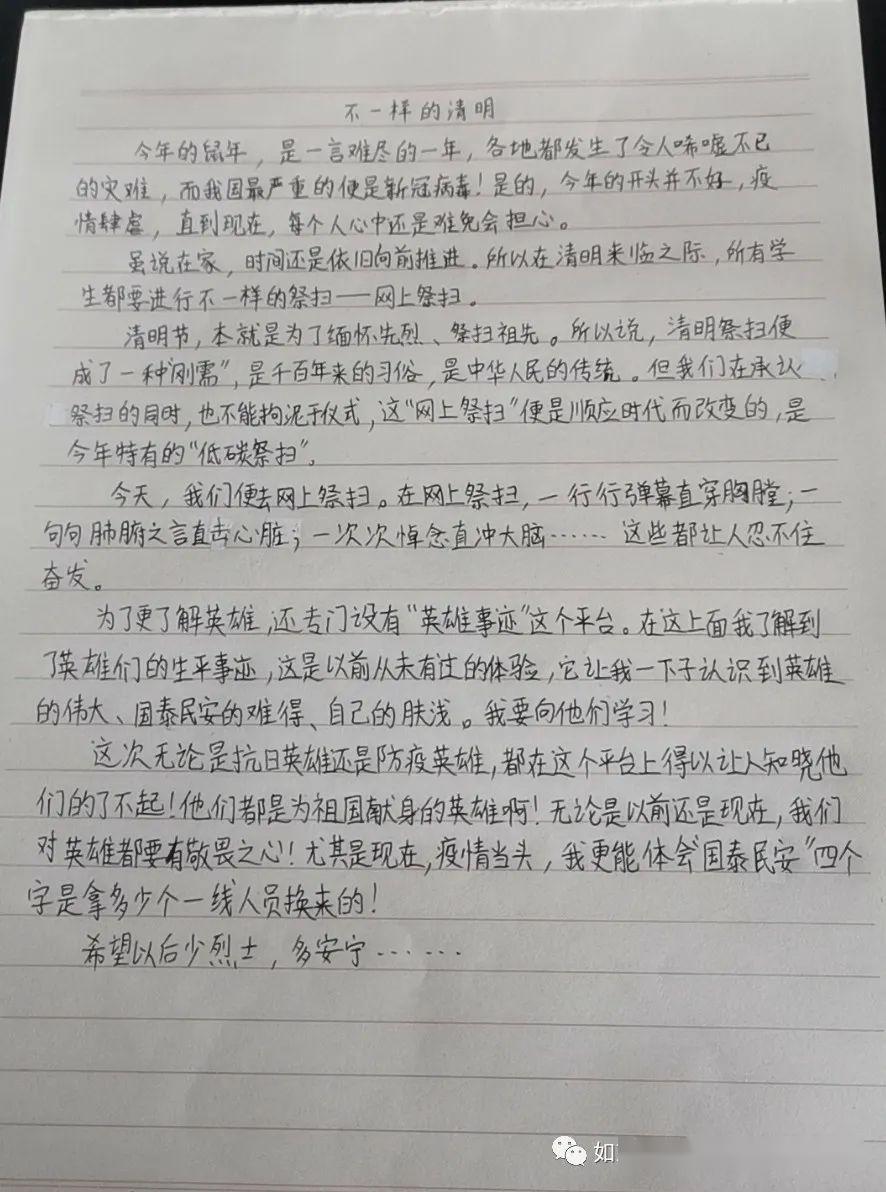 不一样的清明
今年的鼠年，是一言难尽的一年，各地都发生了令人唏嘘不已
的灾难，而我国最严重的便是新冠病毒！是的，今年的开头并不好，疫
情肆虐，直到现在，每个人心中还是难免会担心。
虽说在家，时间还是依旧向前推进。所以在清明来临之际，所有学
生都要进行不一样的祭扫——网上祭扫。
清明节，本就是为了缅怀先烈、祭扫祖先。所以说，清明祭扫便
成了一种“刚需”，是千百年来的习俗，是中华人民的传统。但我们在承认
祭扫的同时，也不能拘泥于仪式，这“网上祭扫”便是顺应时代而改变的，是
今年特有的“低碳祭扫”。
今天，我们便去网上祭扫。在网上祭扫，一行行弹幕直穿胸膛；一
句句肺腑之言直击心脏；一次次悼念直冲大脑…… 这些都让人忍不住
奋发。
为了更了解英雄，还专门设有“英雄事迹”这个平台。在这上面我了解到
了英雄们的生平事迹，这是以前从未有过的体验，它让我一下子认识到英雄
的伟大、国泰民安的难得、自己的肤浅。我要向他们学习！
这次无论是抗日英雄还是防疫英雄，都在这个平台上得以让人知晓他
们的了不起！他们都是为祖国献身的英雄啊！无论是以前还是现在，我们
对英雄都要有敬畏之心！尤其是现在，疫情当头，我更能体会“国泰民安”四个
字是拿多少个一线人员换来的！
希望以后少烈士，多安宁……
如